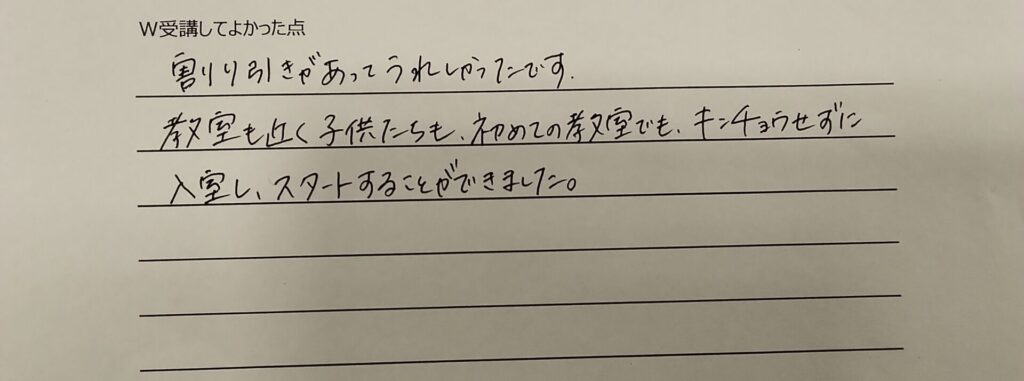 W受講してよかった点
割りり引きがあってうれしかったです.
教室も近く子供たちも、初めての教室でも、キンチョウせずに
入室し、スタートすることができました。